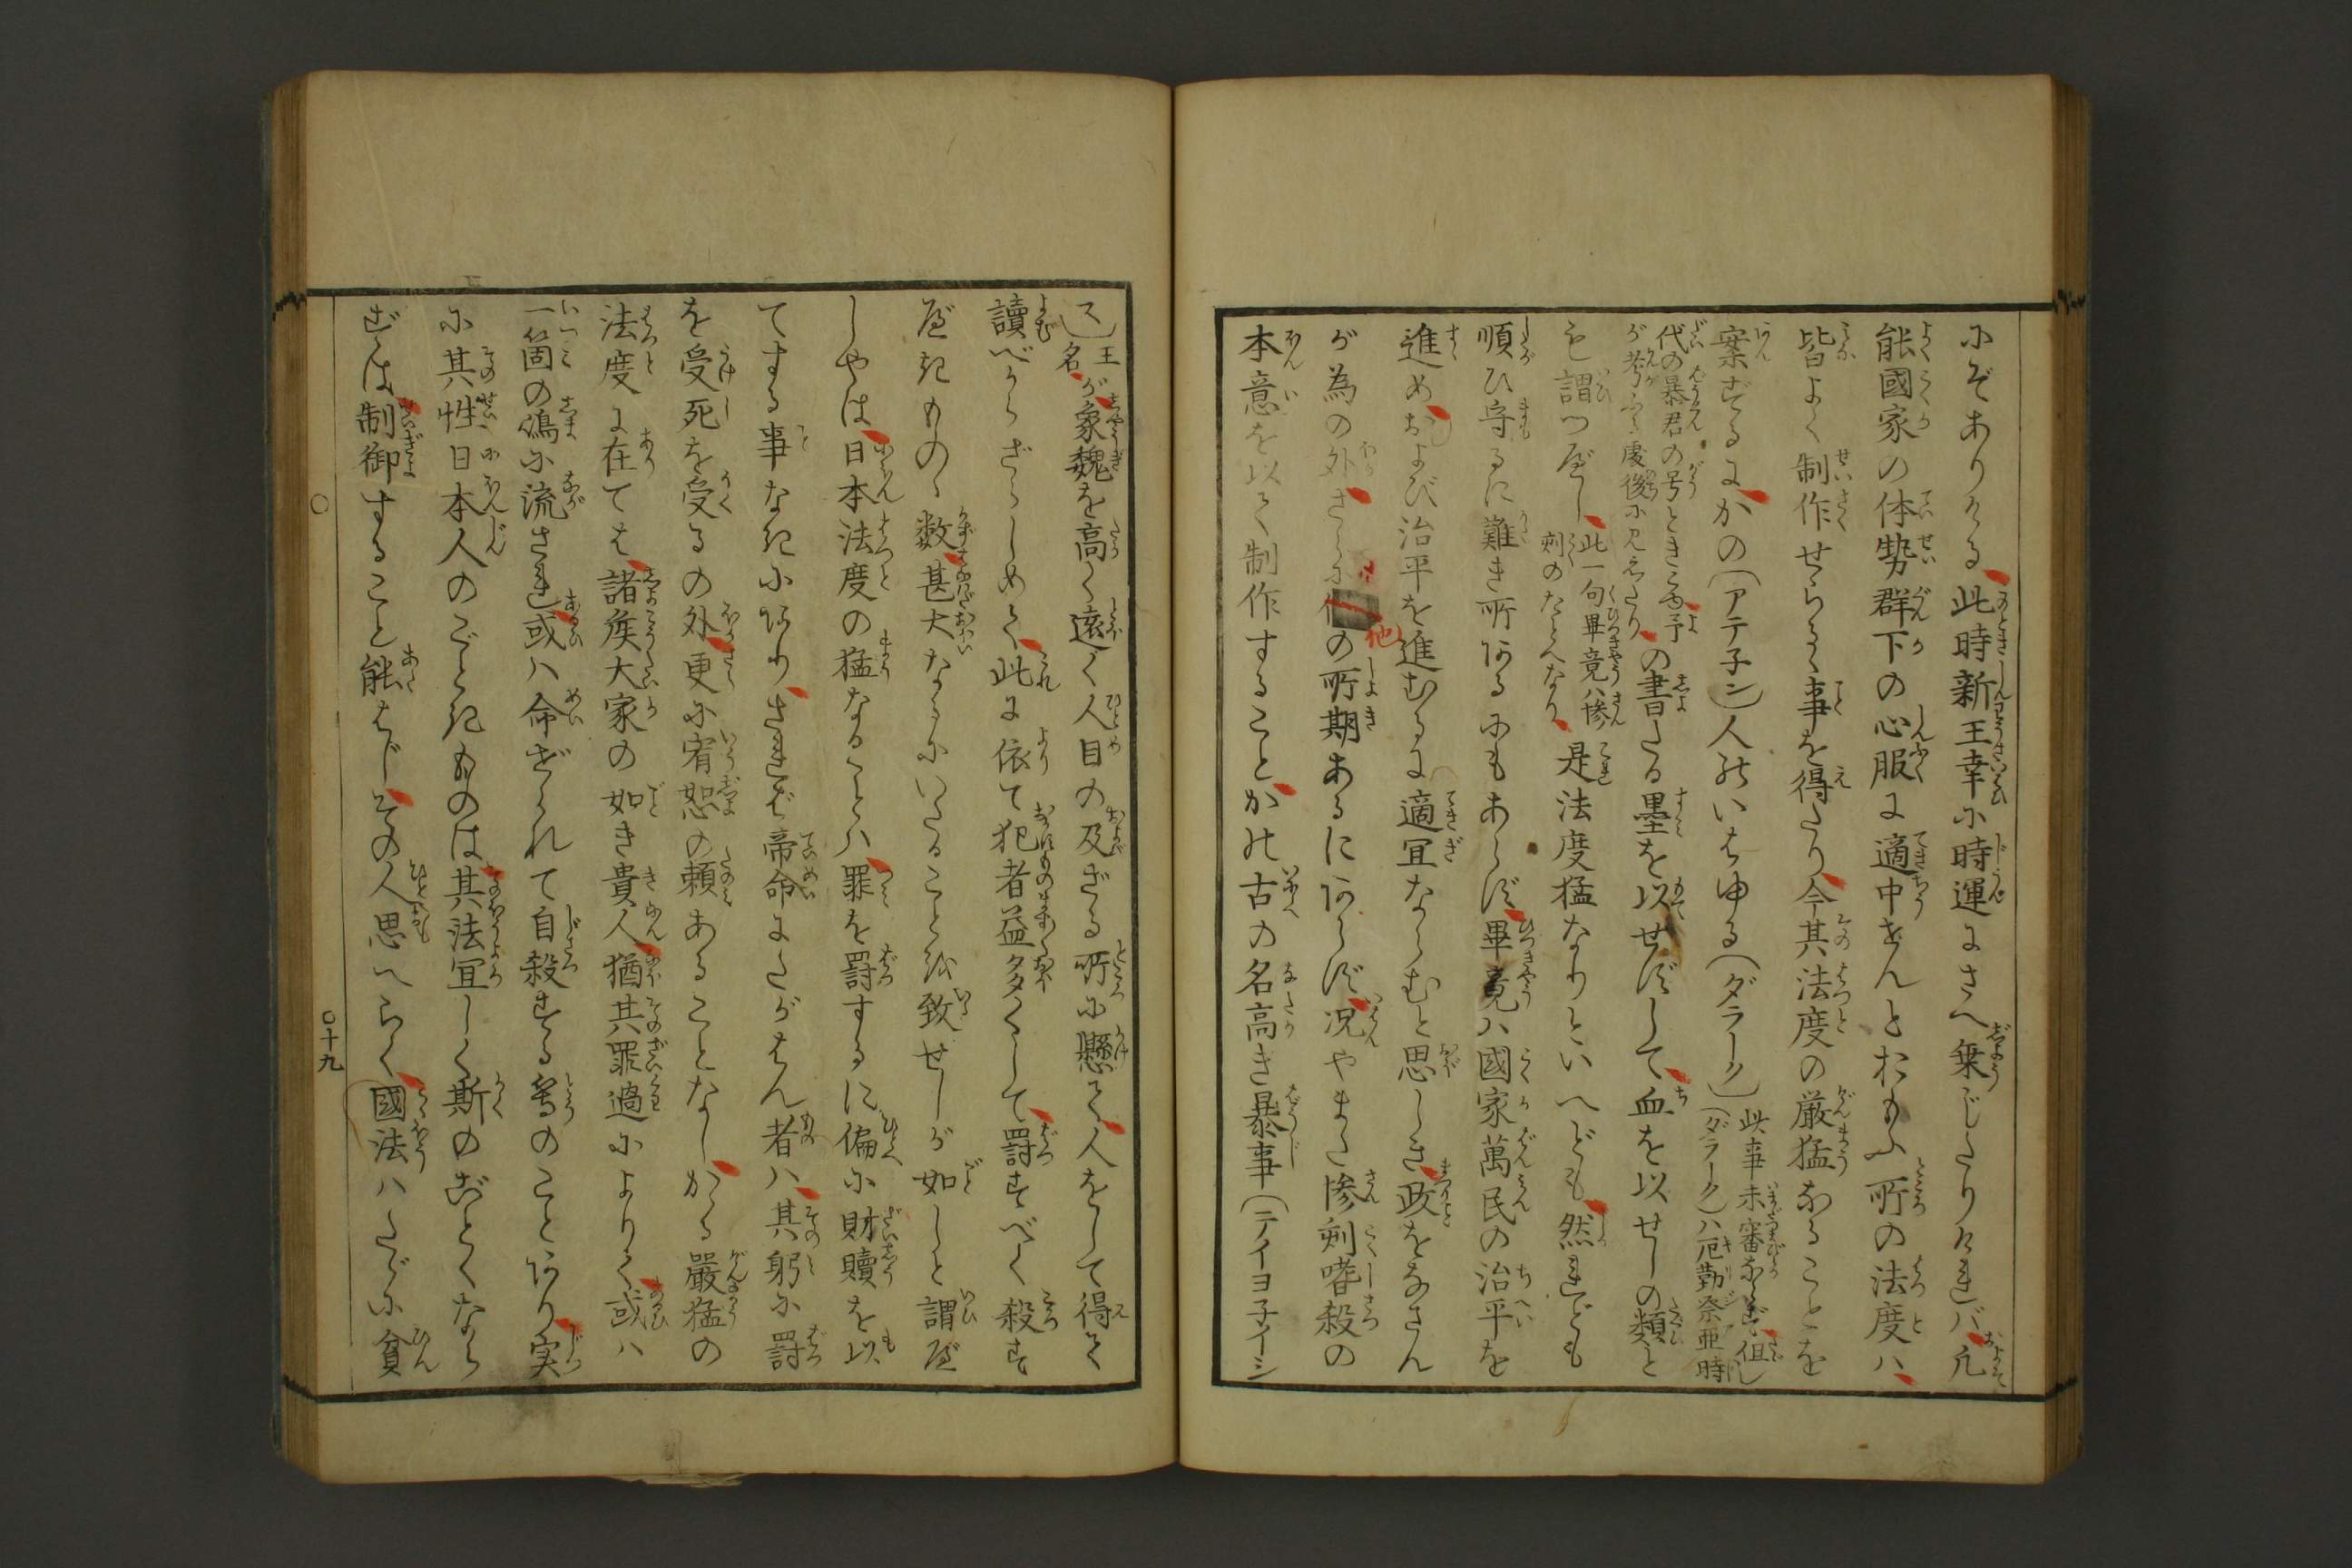 にぞありける此時新王幸に時運にさへ乗じたりけれバ凡
能國家の体勢群下の心服に適中せんとおもふ所の法度ハ
皆よく制作せらるゝ事を得たり今其法度の厳猛なることを
案ずるにかの（アテ子ン）人のいはゆる（ダラーク）
此事未審ならず但し
（ダラーク）ハ厄勤祭亜時
代の暴君の号ときこゆ予
が考ふる處後に見えたり
の書たる墨を以せずして血を以せしの類と
も謂つべし
此一句畢竟ハ惨
刻のたとへなり
是法度猛なりといへども然れども
順ひ守るに難き所あるにもあらず畢竟ハ國家萬民の治平を
進めおよび治平を進むるに適冝ならむと思しき政をなさん
が為の外さらに他の所期あるにあらず况やまた惨刻嗜殺の
本意を以て制作することかの古の名高き暴事（テイヨ子イシ
ス）
王
名
が象魏を高く遠く人目の及ざる所に懸て人をして得て
讀べからざらしめて此に依て犯者益多くして罰すべく殺す
べきものゝ数甚大なるにいたることを致せしが如しと謂べ
しやは日本法度の猛なることハ罪を罰するに偏に財贖を以
てする事なきにあり されば帝命にたがはん者ハ其躬に罰
を受死を受るの外更に宥恕の頼あることなしかゝる嚴猛の
法度に在ては諸矦大家の如き貴人猶其罪過によりて或ハ
一箇の嶋に流され或ハ命ぜられて自殺する等のことあり実
に其性日本人のごときものは其法冝しく斯のごとくなら
ずは制御すること能はじその人思へらく國法ハたゞに貧
〇十九